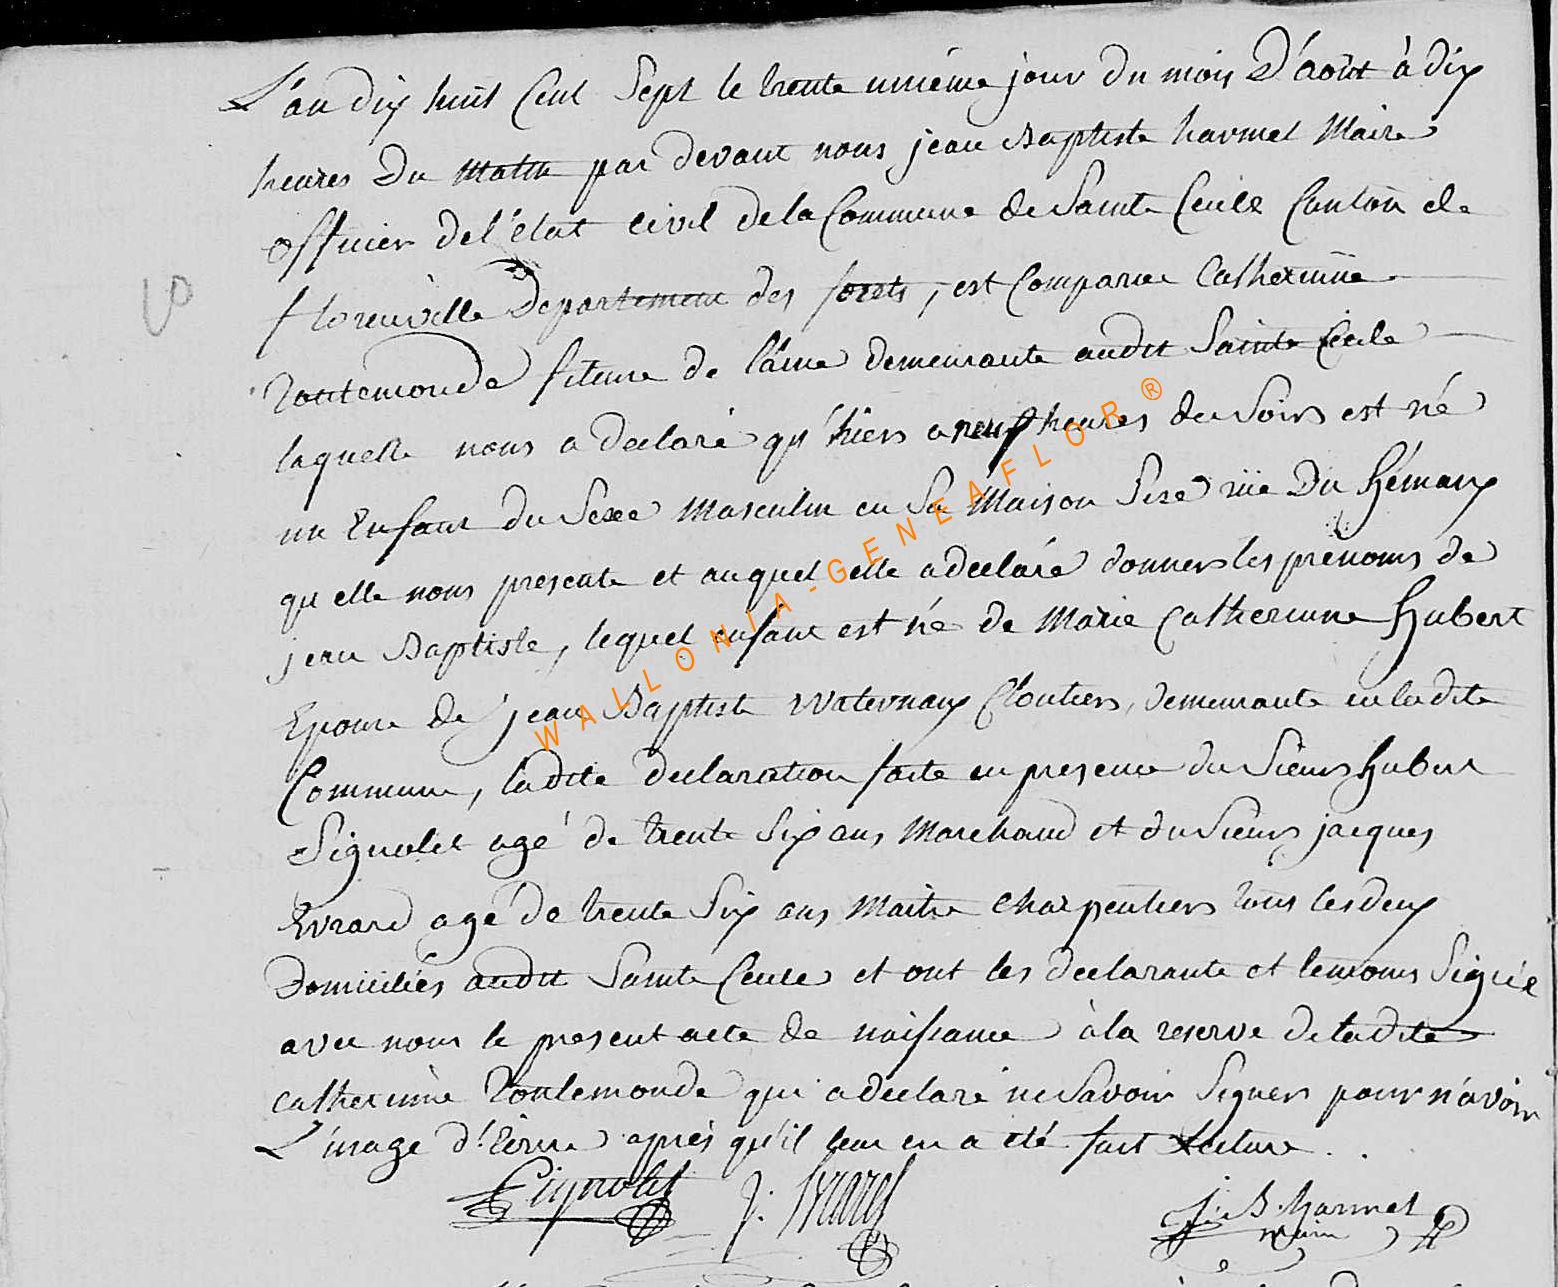 L'an dix huit Cent Sept le trente uniéme jour du mois D'août à dix
heures Du Matin par devant nous jean Baptiste harmel Maire
officier de l'état civil de la Commune de Sainte Cecile Canton de
florenville Departement des forets, est Comparue Catherinne
Toutemonde fileuse de laine demeurante audit Sainte Cecile
laquelle nous a declaré qu'hiers a neuf heures du Soirs est né
un Enfant du Sexe Masculin en Sa Maison Size rüe Du
qu elle nous presente et auquel elle a declaré donner les prénoms de
jean Baptiste, lequel enfant est né de Marie Catherinne Hubert
Epouse de jean Baptiste Waternaux Cloutiers, demeurante en ladite
Commune, ladite declaration faite en presence du Sieurs hubert
Pignolet agé de trente Six ans Marchand et du Sieurs jacques
Evrard agé de trente Six ans Maitre Charpentiers tous les deux
Domiciliés audit Sainte Cecile et ont les declarante et temoins Signée
avec nous le present acte de naissance à la reserve de ladite
Catherinne Toutemonde qui a declaré ne Savoir Signers pour n'avoir
L'usage d'Ecrire après qu'il leur en a été fait Lecture . .
Pignolet J: Evrard J. B. harmel
maire
WALLONIA-GENEAFLOR®